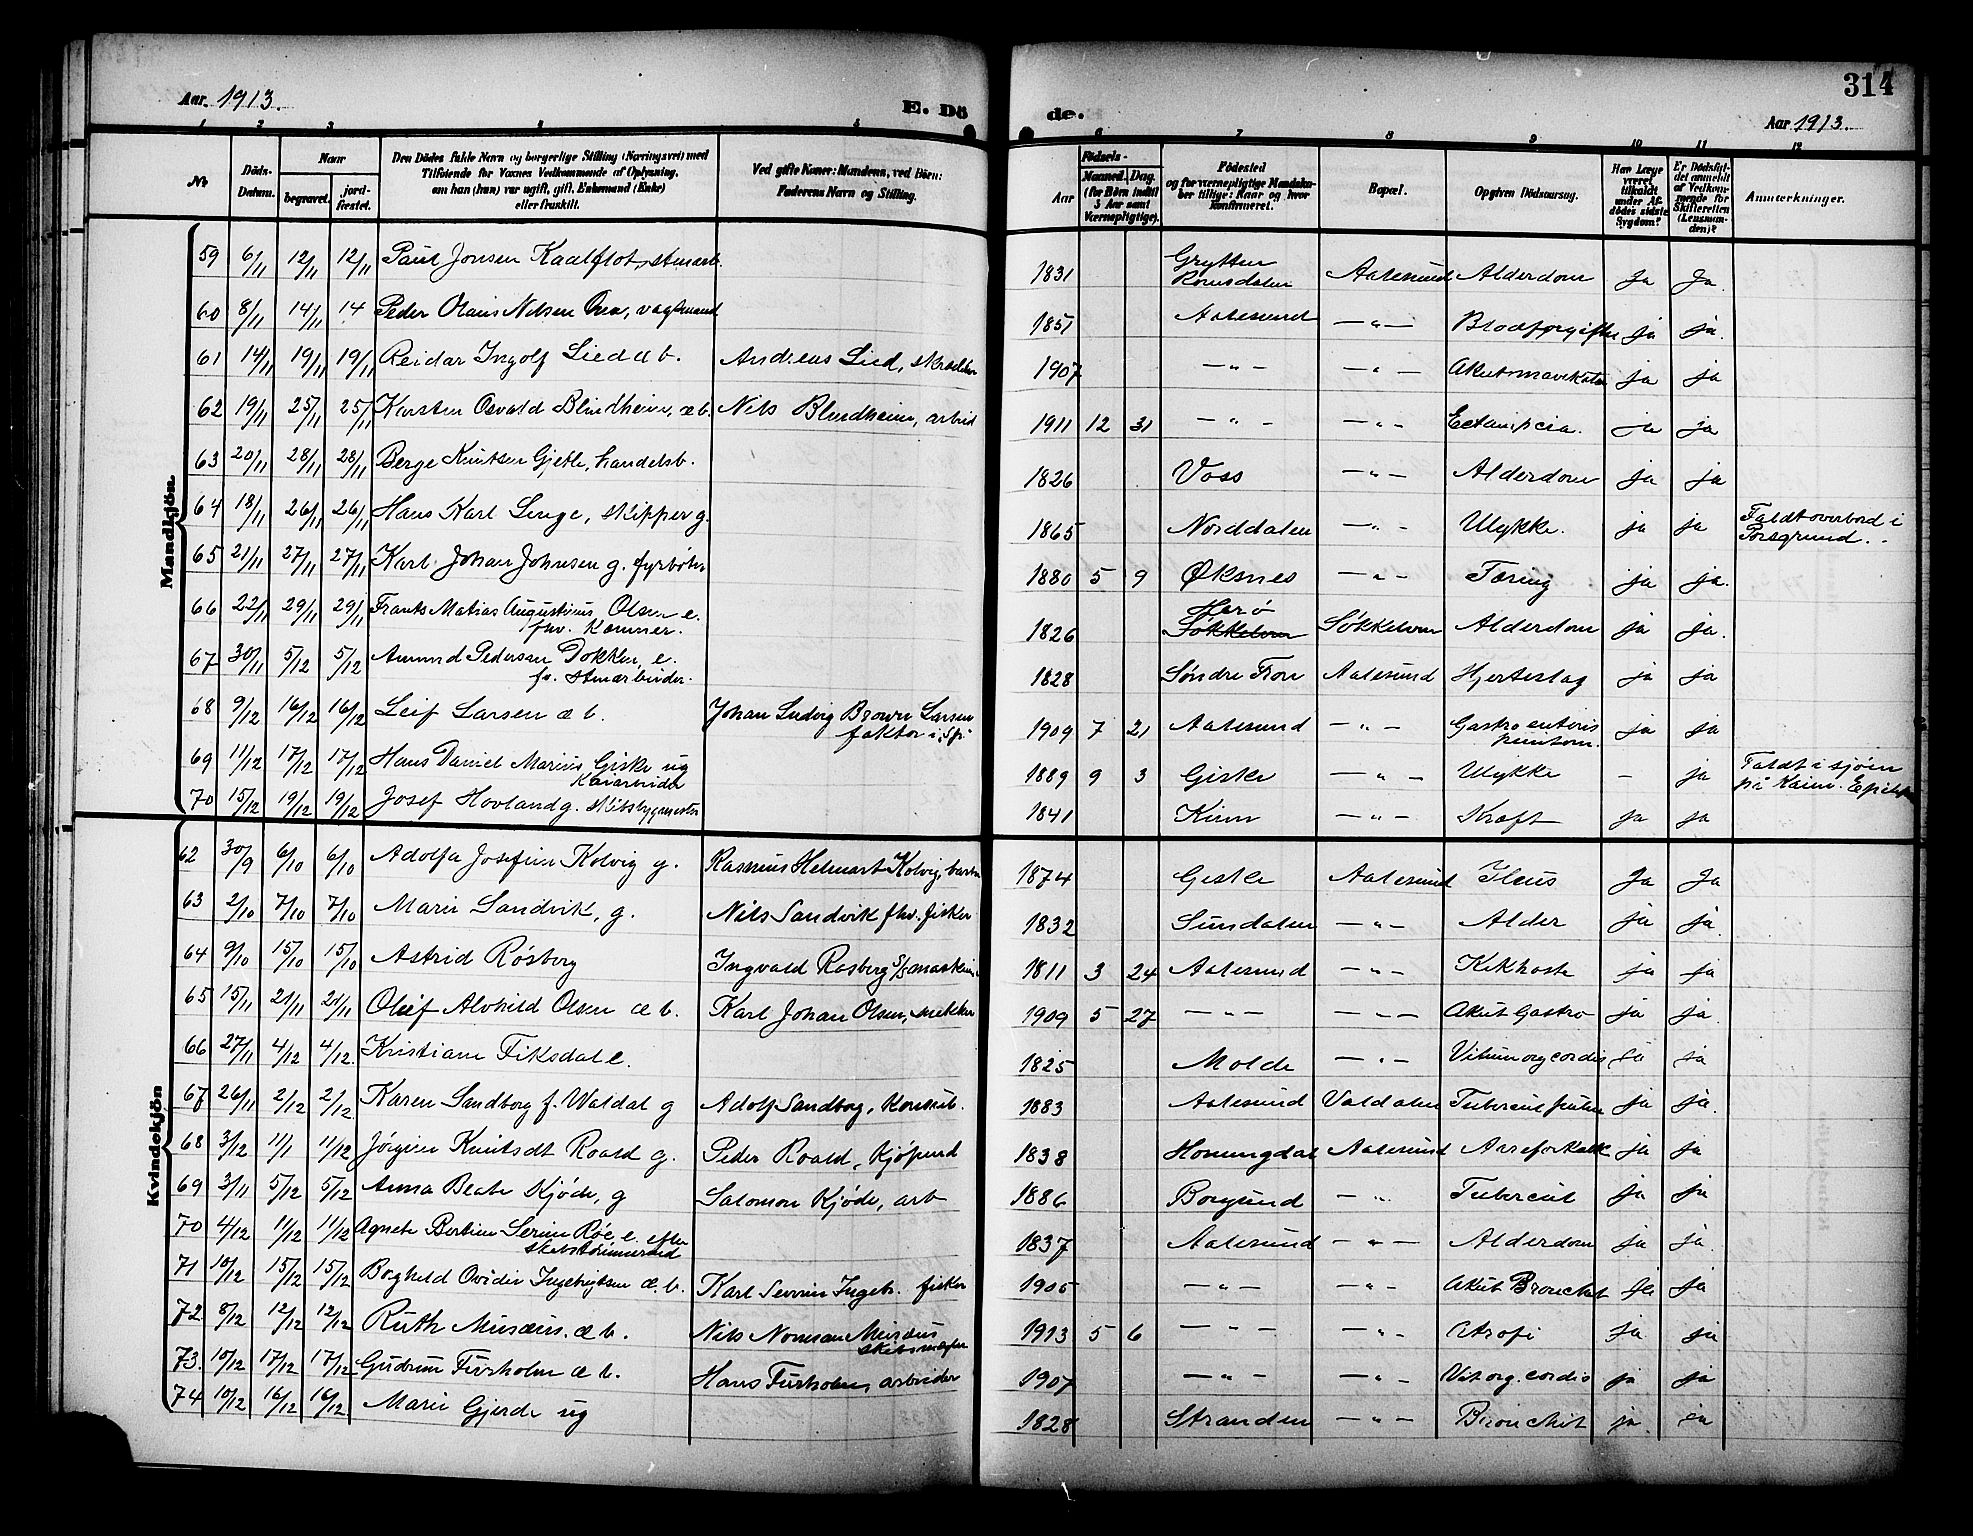 314
Aar. 1913.
E. Dö
de.
Aar 1913.
1 2 3 6 7 8 9 10 11 12
No
Döds-Datum.
Naar
begravet.
jord-fæstet.
Den Dödes fulde Navn og borgerlige Stilling (Næringsvei) med
Tilföiende for Voxnes Vedkommende af Oplysning,
om han (hun) var ugift, gift, Enkemand (Enke)
eller fraskilt.
Ved gifte Koner: Mandens, ved Börn:
Faderens Navn og Stilling.
Födsels-
Aar
Maaned. Dag.
(for Börn indtil
3 Aar samt
Værnepligtige).
Födested
og for værnepligtige Mandska-
ber tillige: Naar og hvor
konfirmeret.
Bopæl.
Opgiven Dödsaarsag.
Har Læge
været
tilkaldt
under Af-
dödes sidste
Sygdom?
Er Dödsfal-
det anmeldt
af Vedkom-
mende for
Skifteretten
(Lensman-
den)?
Anmerkninger.
Mandkjön.
59 6/11 12/11 12/11 Paul Jonsen Kaalflot, stuarb. 1831 Grytten Romsdalen Aalesund Alderdom Ja Ja.
60 8/11 14/11 14 Peder Olaus Nilsen, vagtmand 1851 Aalesund — " — Blodforgiftn ja ja.
61 14/11 19/11 19/11 Reidar Ingolf Lied æb. Andreas Lied, skrædder 1907 — " — — " — Akut ja ja
62 19/11 25/11 25/11 Karsten Osvald Blindheim, æb. Nils Blindheim, arbeid 1911 12 31 — " — — " — Eclampcia. ja ja
63 20/11 28/11 28/11 Berge Knutsen Gjetle, handelsb. 1826 Voss — " — Alderdom ja ja
64 18/11 26/11 26/11 Hans Karl Linge, skipper g. 1865 Norddalen — " — Ulykke. ja ja Faldt overbord i Porsgrund.
65 21/11 27/11 27/11 Karl Johan Johnsen g. fyrbøter 1880 5 9 Øksnes — " — Tæring ja ja.
66 22/11 29/11 29/11 Frants Matias Augustinus Olsen e. fhv. Kæmner. 1826 Herø Søkkelven Søkkelven Alderdom ja ja.
67 30/11 5/12 5/12 Amund Pedersen Dokken, e. fv. stuarbeider. 1828 Søndre Fron Aalesund Hjerteslag ja ja
68 9/12 16/12 16/12 Leif Larsen æ b. Johan Ludvig Brown Larsen faktor i 1909 7 21 Aalesund — " — Gastro enteris ja ja
69 11/12 17/12 17/12 Hans Daniel Marius Giske ug Kaiarbeider 1889 9 3 Giske — " — Ulykke – ja Faldt i sjøen på Kaien.
70 15/12 19/12 19/12 Josef Hovland g. skibsbygmester 1841 Kinn — " — Kræft ja ja
Kvindekjön
62 30/9 6/10 6/10 Adolfa Josefine Kolvig g. Rasmus Helmart Kolvig, 1874 Giske Aalesund Ileus Ja Ja
63 2/10 7/10 7/10 Marie Sandvik, g. Nils Sandvik fhv. fisker 1832 Sundalen — " — Alder ja ja.
64 9/10 15/10 15/10 Astrid Røsberg Ingvald Rosberg S/S maskin 1811 3 24 Aalesund — " — Kikhoste ja ja
65 15/11 21/11 21/11 Oluf Alvhild Olsen æ b. Karl Johan Olsen, snekker 1909 5 27 — " — — " — Akut Gastro ja ja.
66 27/11 4/12 4/12. Kristiane Fiksdal e. 1825 Molde — " — Vitium org cordis ja ja
67 26/11 2/12 2/12 Karen Sandborg f. Waldal g Adolf Sandborg, Konsul. 1883 Aalesund Valdalen Tubercul ja ja.
68 3/12 11/1 11/12 Jørgine Knutsdt Roald g. Peder Roald, Kjøpmd 1838 Horningdal Aalesund Aareforkalk ja ja
69 3/11 5/12 5/12 Anna Beate Kjøde, g Salomon Kjøde, arb 1886 Borgund — " Tubercul ja ja
70 4/12 11/12 11/12 Agnete Bertine Serine Røe, e. efter skibstømmermd 1837 Aalesund — " — Alderdom ja ja.
71 10/12 15/12 15/12 Boghild Ovidie Ingebrigtsen æ. b. Karl Severin Ingebr. fisker 1905 — " — — " — Akut Bronchit ja ja
72 8/12 12/12 12/12 Ruth Musæus. æ b. Nils Norman Musæus skibsmægler 1913 5 6 — " — — " — Atrofi ja ja
73. 10/12 17/12 17/12 Gudrun Furholm æ b. Hans Furholm, arbeider 1907 — " — — " — Vit org. cordis ja ja
74 10/12 16/12 16/12. Marie Gjerde ug 1828 Stranden — " — Bronchit ja. ja